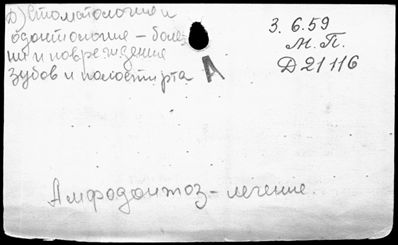 д) Стоматология и
одонтология - болез
ни и повреждения
зубов и полости рта
А
3. 6. 59
М. П.
Д 21116
Амфодонтоз - лечение.